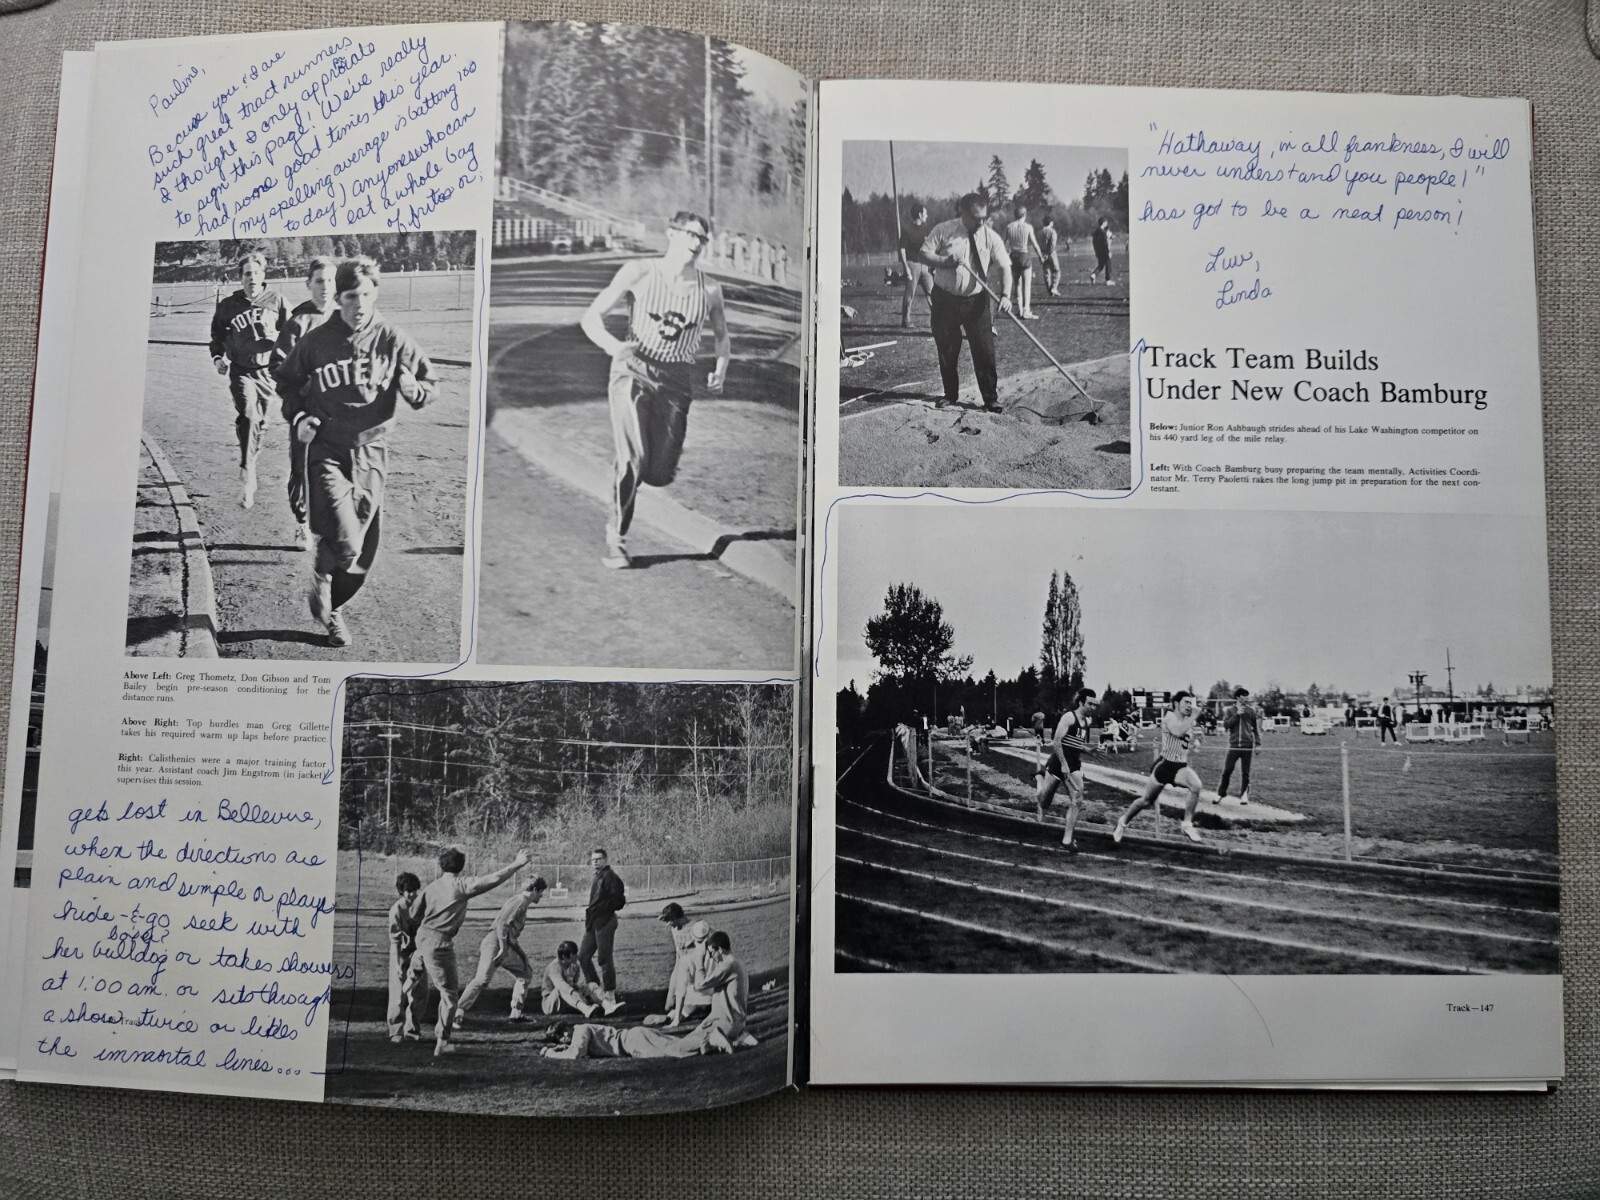 Pauline,
Because you & I are
such great tract runners
I thought I only approbiate
to sign this page! We've really
had some good times this year.
(my spelling average is batting 100
today) anyone who can
eat a whole bag
of fritos or,
TOTE
TOTE
S
Above Left: Greg Thometz, Don Gibson and Tom
Bailey begin pre-season conditioning for the
distance runs.
Above Right: Top hurdles man Greg Gillette
takes his required warm up laps before practice.
Right: Calisthenics were a major training factor
this year. Assistant coach Jim Engstrom (in jacket)
supervises this session.
gets lost in Bellevue,
when the directions are
plain and simple or plays
hide-&-go seek with
her bulldog or takes showers
at 1:00 am. or sits through
a show twice or likes
the immortal lines...
"Hathaway, in all frankness, I will
never understand you people!"
has got to be a neat person!
Luv,
Linda
Track Team Builds
Under New Coach Bamburg
Below: Junior Ron Ashbaugh strides ahead of his Lake Washington competitor on
his 440 yard leg of the mile relay.
Left: With Coach Bamburg busy preparing the team mentally, Activities Coordi-
nator Mr. Terry Paoletti rakes the long jump pit in preparation for the next con-
testant.
Track—147